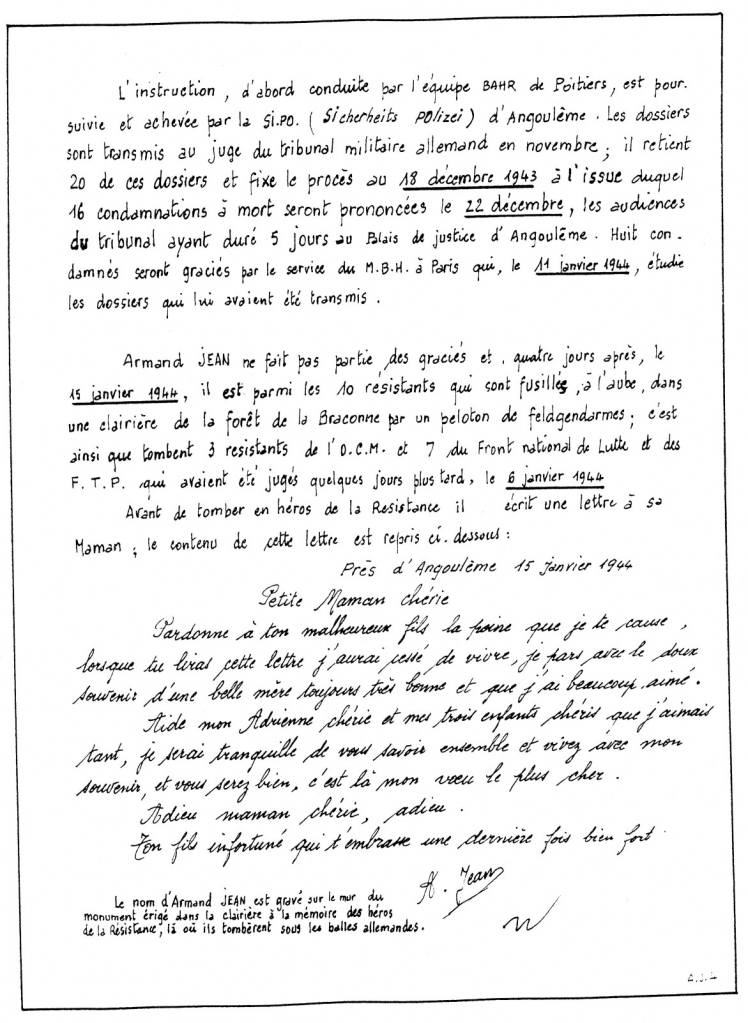 L'instruction, d'abord conduite par l'équipe BAHR de Poitiers, est pour-
suivie et achevée par la SI.PO. (Sicherheits POlizei) d'Angoulême. Les dossiers
sont transmis au juge du tribunal militaire allemand en novembre; il retient
20 de ces dossiers et fixe le procès au 18 décembre 1943 à l'issue duquel
16 condamnations à mort seront prononcées le 22 décembre, les audiences
du tribunal ayant duré 5 jours au Palais de justice d'Angoulême. Huit con-
damnés seront graciés par le service du M.B.H. à Paris qui, le 11 janvier 1944, étudie
les dossiers qui lui avaient été transmis.
Armand JEAN ne fait pas partie des graciés et, quatre jours après, le
15 janvier 1944, il est parmi les 10 résistants qui sont fusillés, à l'aube, dans
une clairière de la forêt de la Braconne par un peloton de feldgendarmes; c'est
ainsi que tombent 3 resistants de l'O.C.M. et 7 du Front national de Lutte et des
F.T.P. qui avaient été jugés quelques jours plus tard, le 6 janvier 1944
Avant de tomber en héros de la Resistance il écrit une lettre à sa
Maman; le contenu de cette lettre est repris ci-dessous:
Près d'Angoulême 15 janvier 1944
Petite Maman chérie
Pardonne à ton malheureux fils la peine que je te cause,
lorsque tu liras cette lettre j'aurai cessé de vivre, je pars avec le doux
souvenir d'une belle mère toujours très bonne et que j'ai beaucoup aimé.
Aide mon Adrienne chérie et mes trois enfants chéris que j'aimais
tant, je serai tranquille de vous savoir ensemble et vivez avec mon
souvenir, et vous serez bien, c'est là mon vœu le plus cher.
Adieu maman chérie, adieu.
Ton fils infortuné qui t'embrasse une dernière fois bien fort.
A. Jean
Le nom d'Armand JEAN est gravé sur le mur du
monument érigé dans la clairière à la mémoire des héros
de la Résistance, là où ils tombèrent sous les balles allemandes.